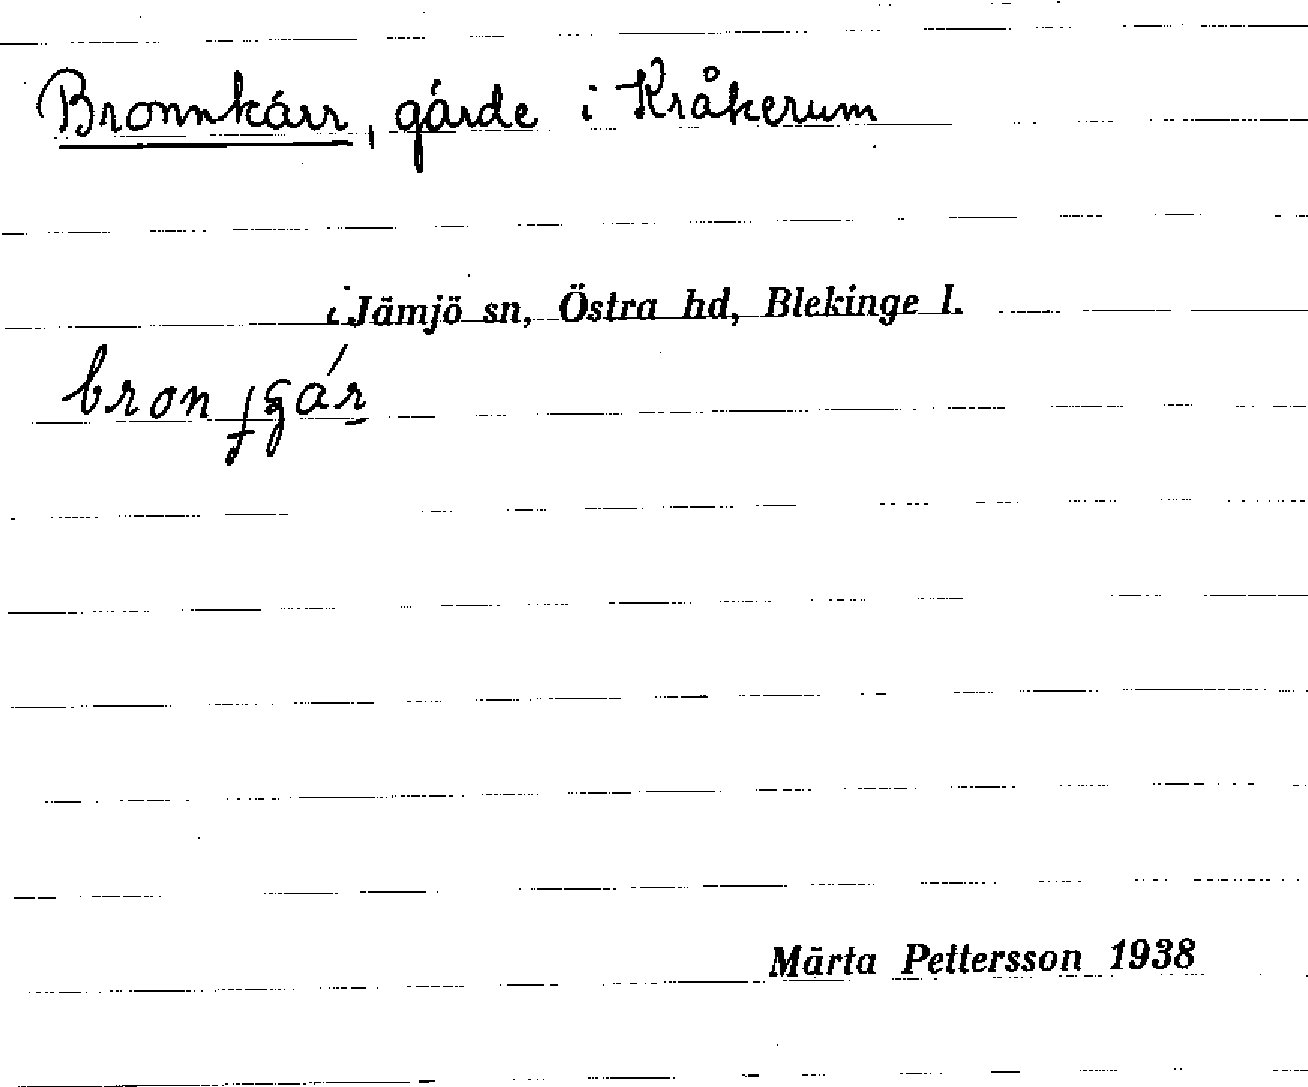 Bronnkärr, gärde i Kråkerum
i Jämjö sn, Östra hd, Blekinge l.
Märta Pettersson 1938